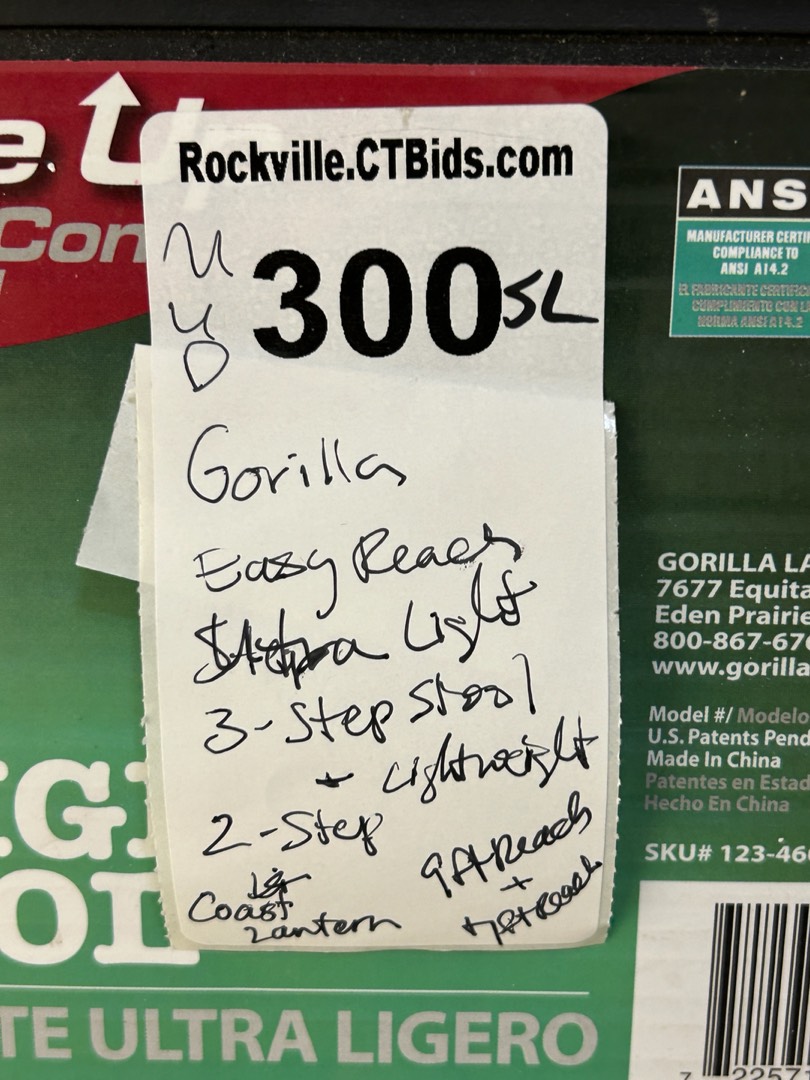 e Up
Con
Rockville.CTBids.com
300 SL
Gorilla
Easy Reach
Light
3-Step Stool
+ Lightweight
2-Step
9ft Reach
+
7ft Reach
Coast
Lantern
ANS
MANUFACTURER CERTI
COMPLIANCE TO
ANSI A14.2
EL FABRICANTE CERTIFICA
CUMPLIMIENTO CON L
NORMA ANSI A14.2
GORILLA LA
7677 Equita
Eden Prairie
800-867-676
www.gorilla
Model #/ Modelo
U.S. Patents Pend
Made In China
Patentes en Estad
Hecho En China
SKU# 123-466
IGI
OOL
TE ULTRA LIGERO
7 22571